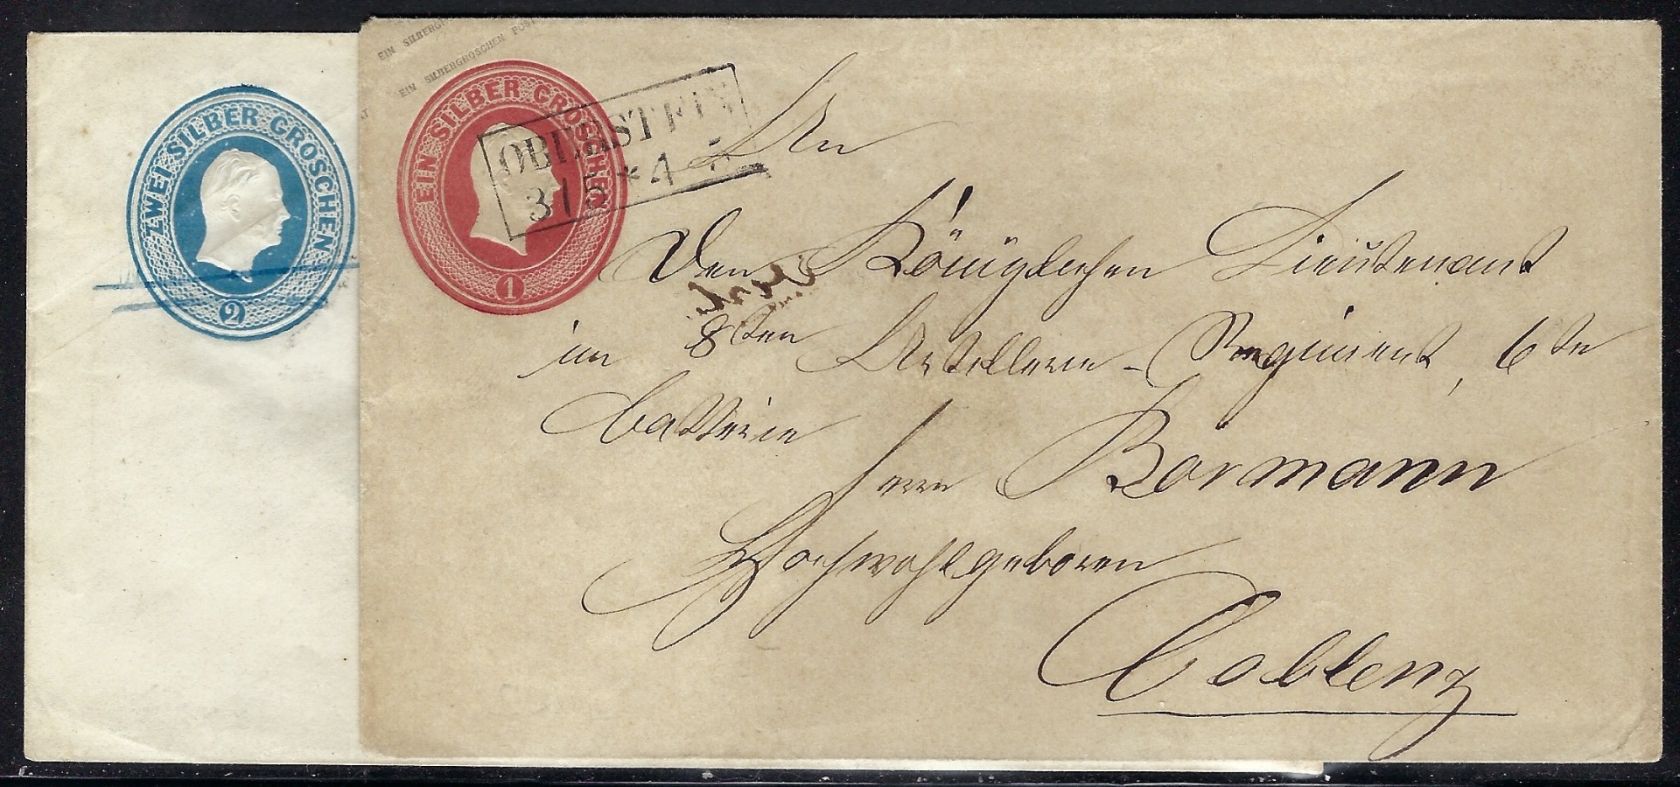 ZWEI SILBER GROSCHEN
2
EIN SILBERGR
EIN SILBERGROSCHEN POST
EIN SILBER GROSCHEN
1
OBERSTEIN
31 5 * 4-5
An
Den Königlichen Lieutenant
im 8ten Artillerie-Regiment, 6te
Batterie
Herrn Bormann
Hochwohlgeboren
Coblenz